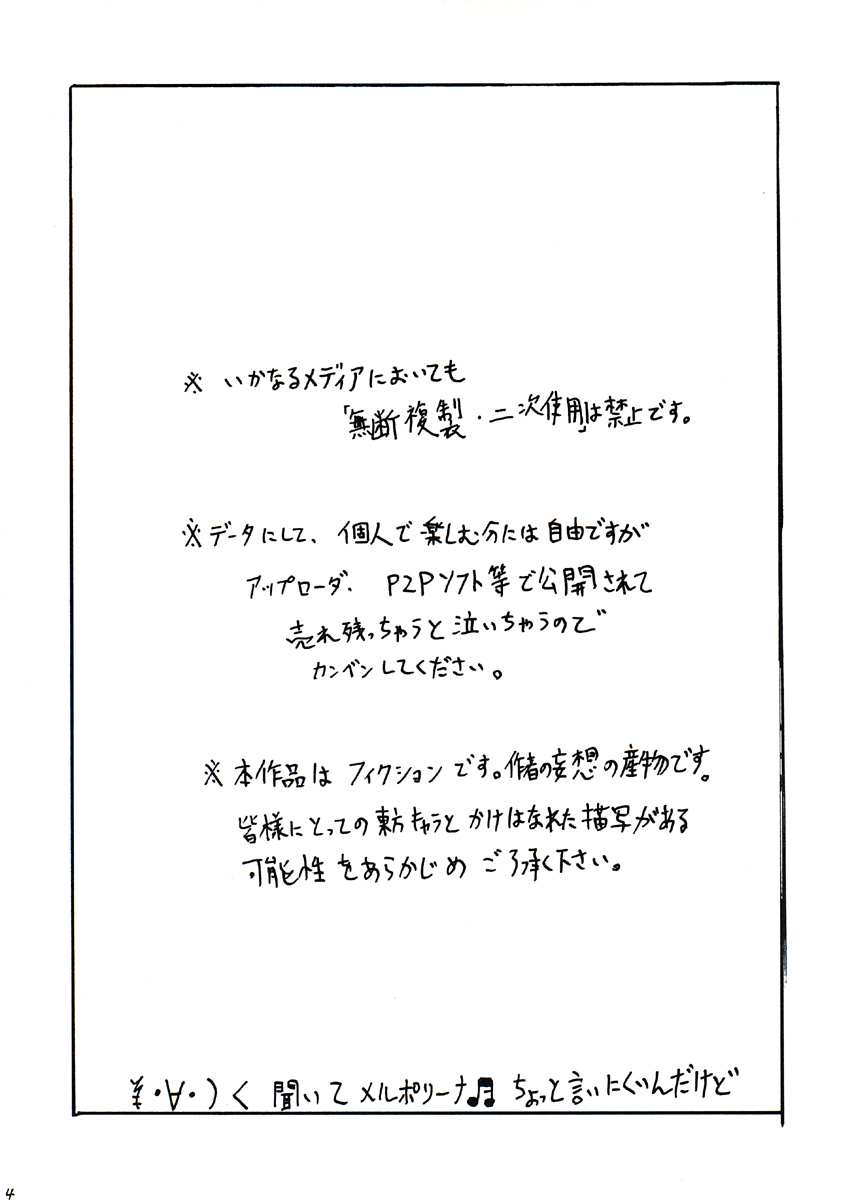 ※ いかなるメディアにおいても
「無断複製・二次使用」は禁止です。
※データにして、個人で楽しむ分には自由ですが
アップローダ、P2Pソフト等で公開されて
売れ残っちゃうと泣いちゃうので
カンベンしてください。
※本作品はフィクションです。作者の妄想の産物です。
皆様にとっての東方キャラとかけはなれた描写がある
可能性をあらかじめご了承下さい。
¥・∀・)く 聞いてメルポリーナ♫ ちょっと言いにくいんだけど
4